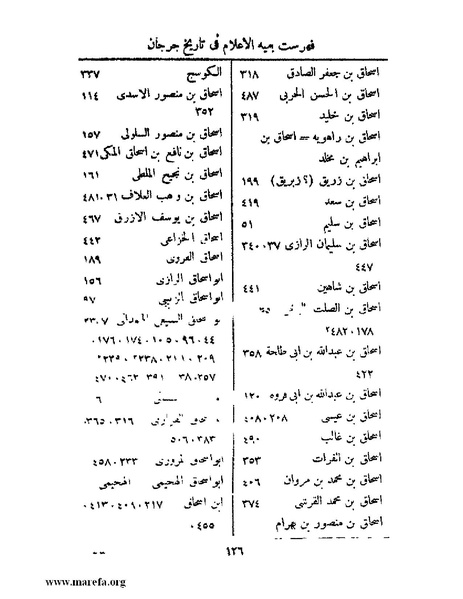 فهرست بقيه الاعلام فى تاريخ جرجان
اسحاق بن جعفر الصادق ٣١٨
اسحاق بن الحسن الحربى ٤٨٧
اسحاق بن خليد ٣١٩
اسحاق بن راهويه = اسحاق بن
ابراهيم بن مخلد
اسحاق بن زريق (؟ زبريق) ١٩٩
اسحاق بن سعد ٤١٩
اسحاق بن سليم ٥١
اسحاق بن سليمان الرازى ٣٧، ٣٤٠
٤٤٧
اسحاق بن شاهين ٤٤١
اسحاق بن الصلت
١٧٨، ٤٨٢
اسحاق بن عبدالله بن ابى طلحة ٣٥٨
٤٢٢
اسحاق بن عبدالله بن ابى فروه ١٢٠
اسحاق بن عيسى ٢٠٨، ٤٠٨
اسحاق بن غالب ٤٩٠
اسحاق بن الفرات ٣٥٣
اسحاق بن محمد بن مروان ٤٠٦
اسحاق بن محمد القرشى ٣٧٤
اسحاق بن منصور بن بهرام
الكوسج ٣٣٧
اسحاق بن منصور الاسدى ١١٤
٣٥٢
اسحاق بن منصور السلولى ١٥٧
اسحاق بن نافع بن اسحاق المكى ٤٧١
اسحاق بن نجيح الملطى ١٦١
اسحاق بن وهب العلاف ٣١، ٤٨١
اسحاق بن يوسف الازرق ٤٦٧
اسحاق الخزاعى ٤٤٣
اسحاق الفروى ١٨٩
ابو اسحاق الرازى ١٥٦
ابو اسحاق الزينبى ٩٧
السبيعى الهمدانى
٤٤، ٩٦، ١٠٥، ١٧٤، ١٧٦،
٢٠٩، ٢١١، ٢٣٨،
٢٥٧، ٣٨٠، ٣٥١، ٤٦٢، ٤٧٠
٦
الفزارى ٣١٦، ٣٦٥،
٣٨٣، ٥٠٦
ابو اسحاق المروزى ٢٣٣، ٤٥٨
ابو اسحاق الهجيمى
ابن اسحاق ٢١٧، ٤٠٩، ٤١٣،
٤٥٥
٤٢٦
www.marefa.org